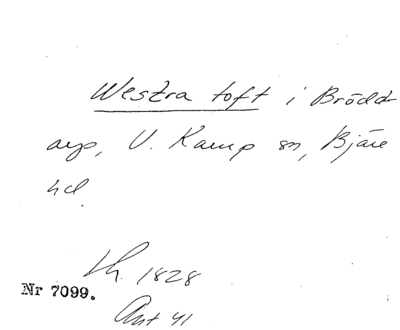 Westra toft i Brödd-
arp, V. Karup sn, Bjäre
hd.
Lh. 1828
Nr 7099.
Ant 41